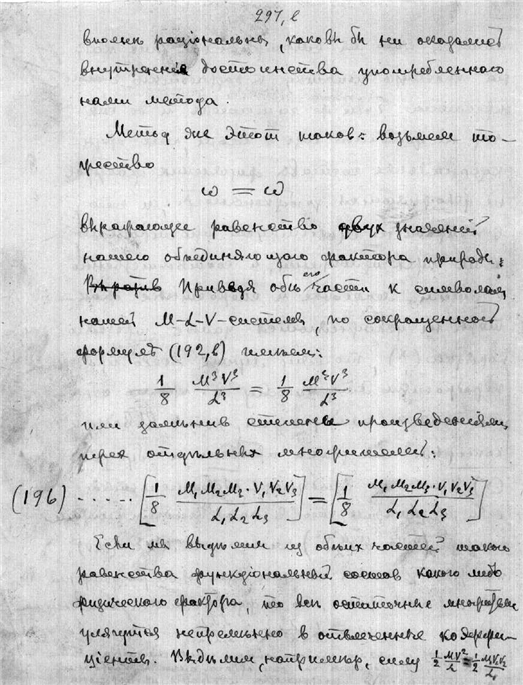 297, в
вполнѣ раціональны, каковы бы ни оказались
внутреннія достоинства употребленнаго
нами метода.
Методъ же этотъ таковъ: возьмемъ то-
ждество
ω = ω
выражающее равенство двухъ значеній
нашего объединяющаго фактора природы.
Приводя обѣ его части къ символамъ
нашей M-L-V-системы, по сокращенной
формулѣ (192,в) имѣемъ:
1/8 M³V³/L³ = 1/8 M³V³/L³
или замѣнивъ степени произведеніями
трехъ отдѣльныхъ множителей:
(196) ..... [1/8 M₁M₂M₃·V₁V₂V₃/L₁L₂L₃] = [1/8 M₁M₂M₃·V₁V₂V₃/L₁L₂L₃]
Если мы выдѣлимъ изъ обѣихъ частей такого
равенства функціональный составъ какого либо
физическаго фактора, то всѣ остаточные множители
улягутся непремѣнно въ отвлеченные коэффи-
ціенты. Выдѣлимъ, напримѣръ, силу 1/2 MV²/L = 1/2 M₁V₁V₂/L₁